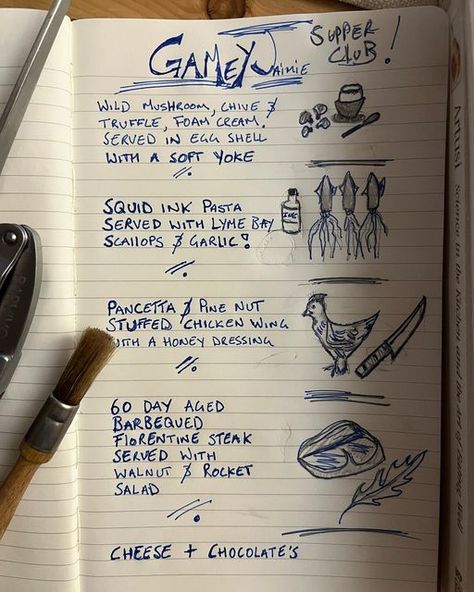 GAMEY JAIMIE
SUPPER
CLUB!
WILD MUSHROOM, CHIVE &
TRUFFLE, FOAM CREAM.
SERVED IN EGG SHELL
WITH A SOFT YOKE
SQUID INK PASTA
SERVED WITH LYME BAY
SCALLOPS & GARLIC!
INK
PANCETTA & PINE NUT
STUFFED CHICKEN WING
WITH A HONEY DRESSING
60 DAY AGED
BARBEQUED
FLORENTINE STEAK
SERVED WITH
WALNUT & ROCKET
SALAD
CHEESE + CHOCOLATE'S
Science in the Kitchen and the Art of Eating Well
ARTUSI